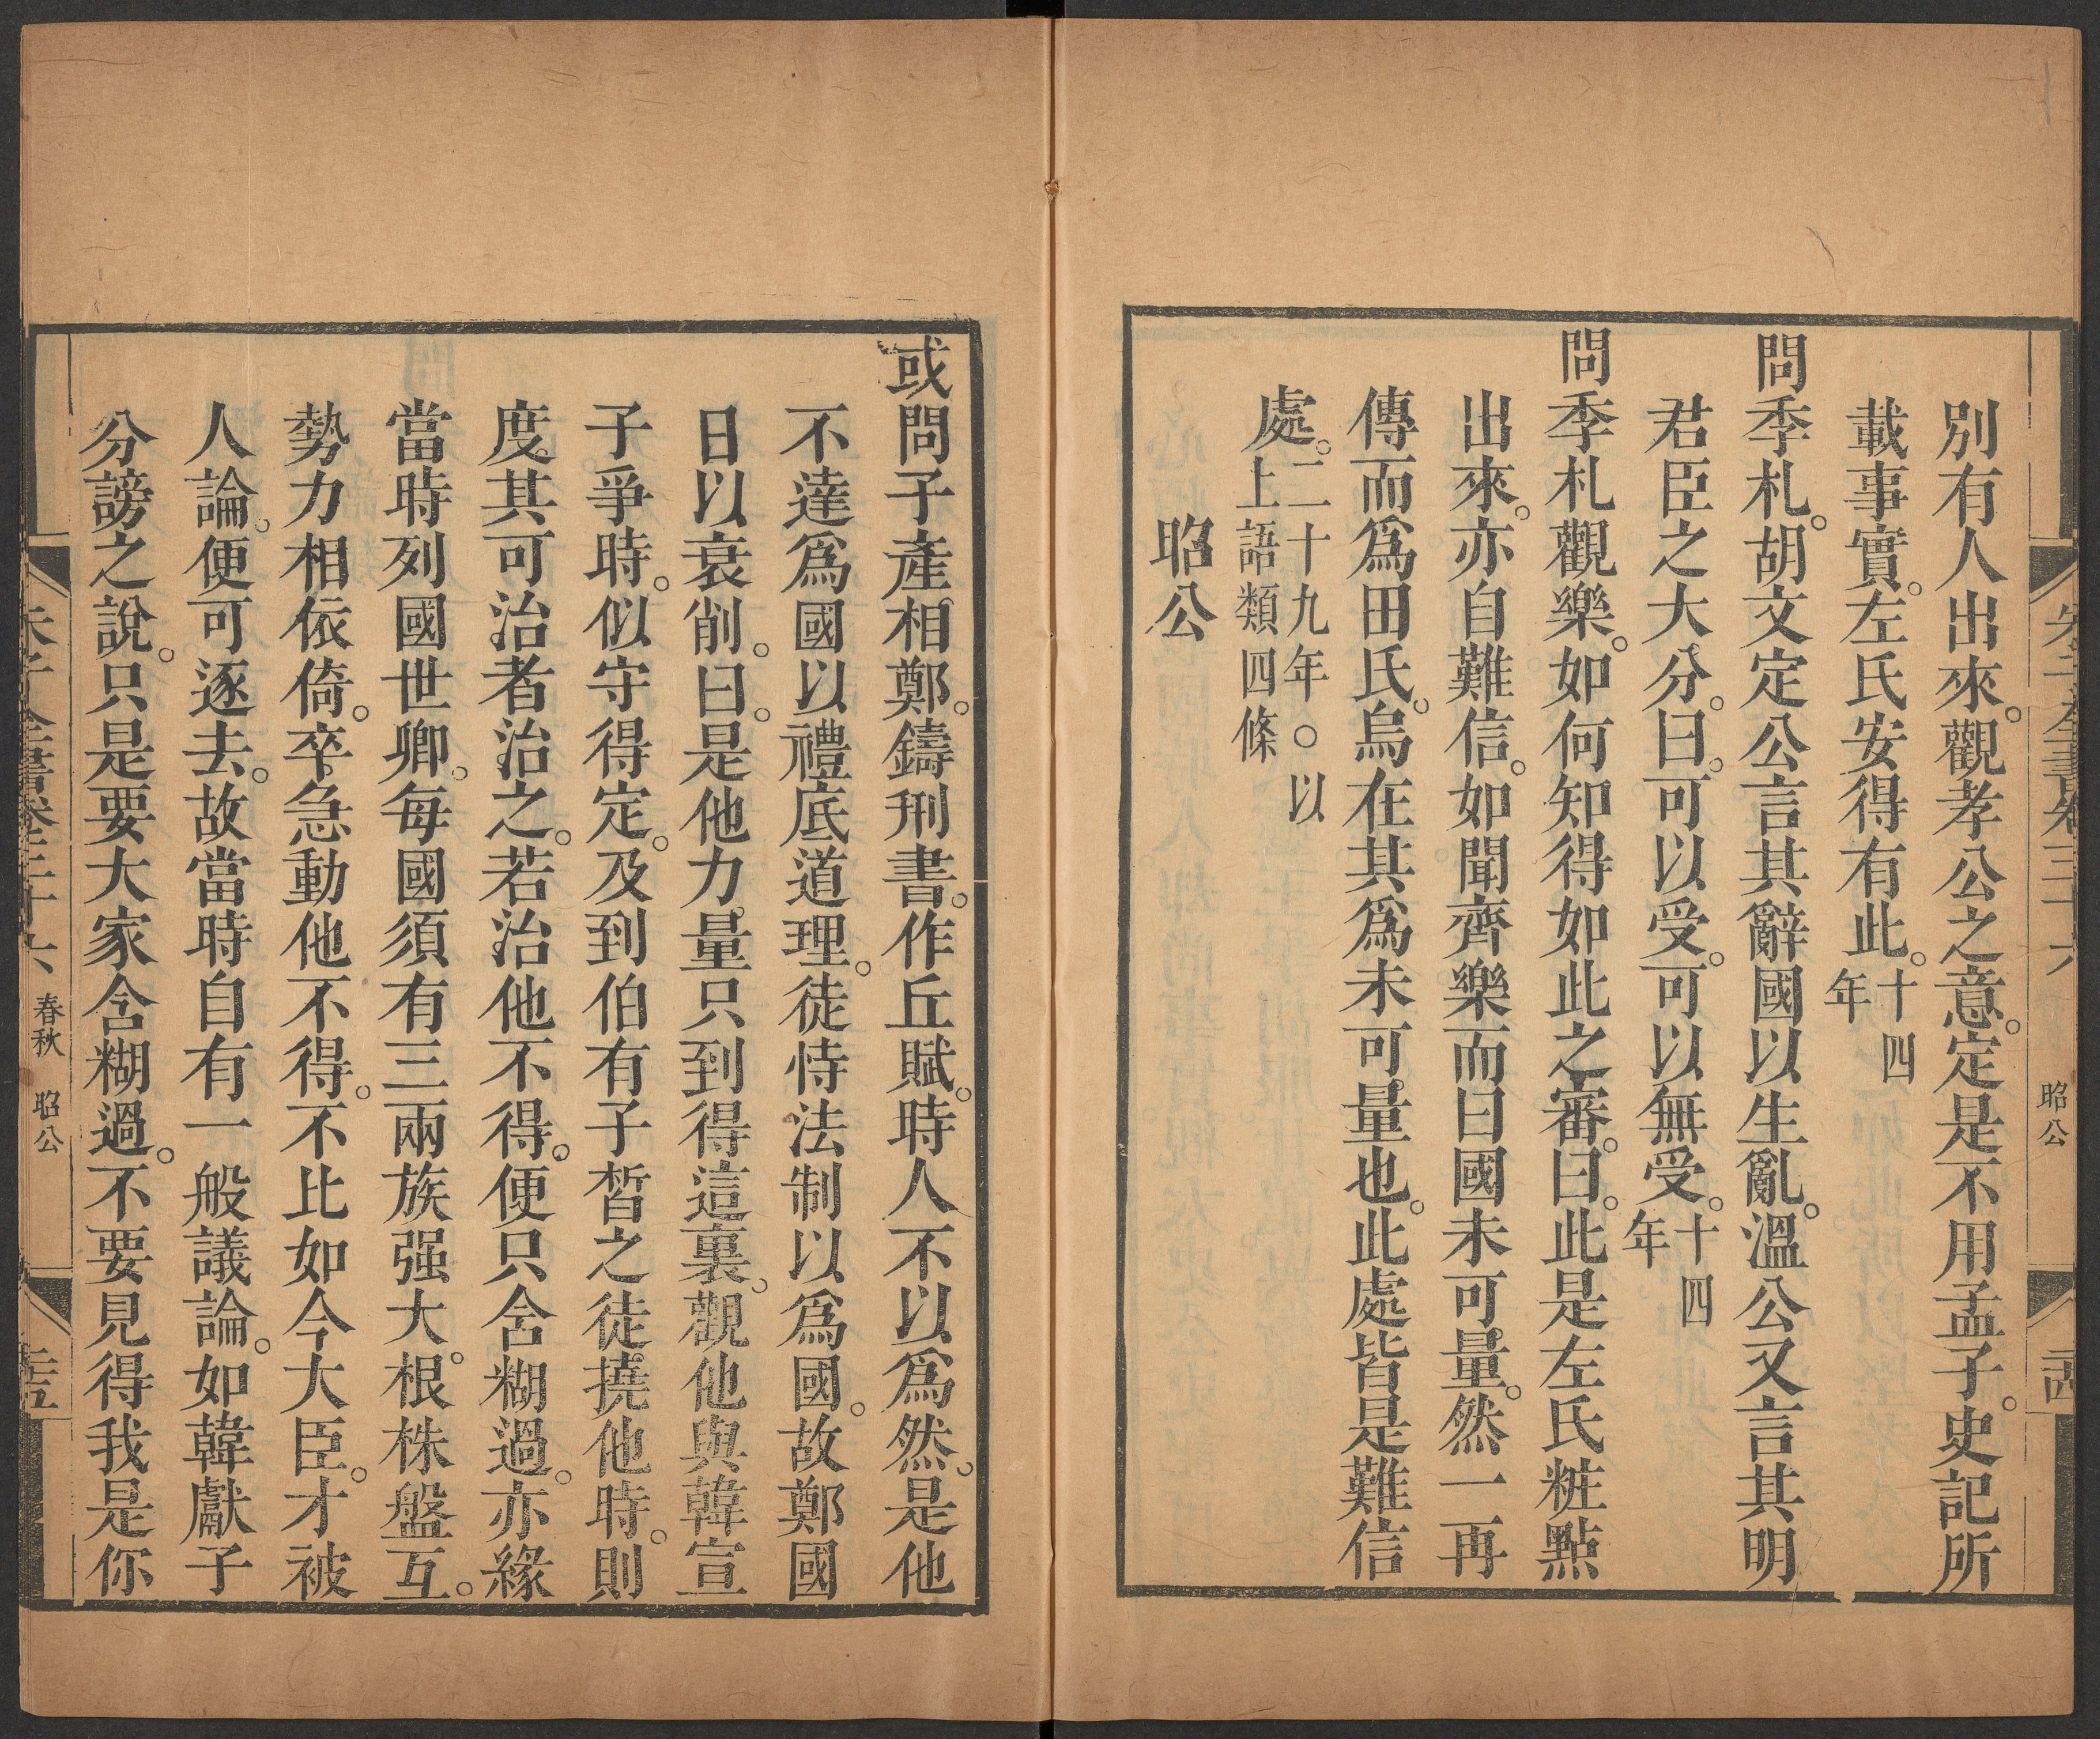 別有人出來。觀孝公之意。定是不用孟子。史記所
載事實。左氏安得有此。十四年
問季札。胡文定公言其辭國以生亂。溫公又言其明
君臣之大分。曰。可以受。可以無受。十四年
問季札觀樂。如何知得如此之審。曰。此是左氏粧點
出來。亦自難信。如聞齊樂而曰國未可量。然一再
傳而為田氏。烏在其為未可量也。此處皆是難信
處。二十九年。○以上語類四條
昭公
或問子產相鄭。鑄刑書。作丘賦。時人不以為然。是他
不達為國以禮底道理。徒恃法制以為國。故鄭國
日以衰削。曰。是他力量只到得這裏。觀他與韓宣
子爭時。似守得定。及到伯有子晳之徒撓他時。則
度其可治者治之。若治他不得。便只含糊過。亦緣
當時列國世卿。每國須有三兩族强大。根株盤互。
勢力相依倚。卒急動他不得。不比如今大臣。才被
人論。便可逐去。故當時自有一般議論。如韓獻子
分謗之說。只是要大家含糊過。不要見得我是你
朱子全書卷三十六 春秋 昭公
昭公